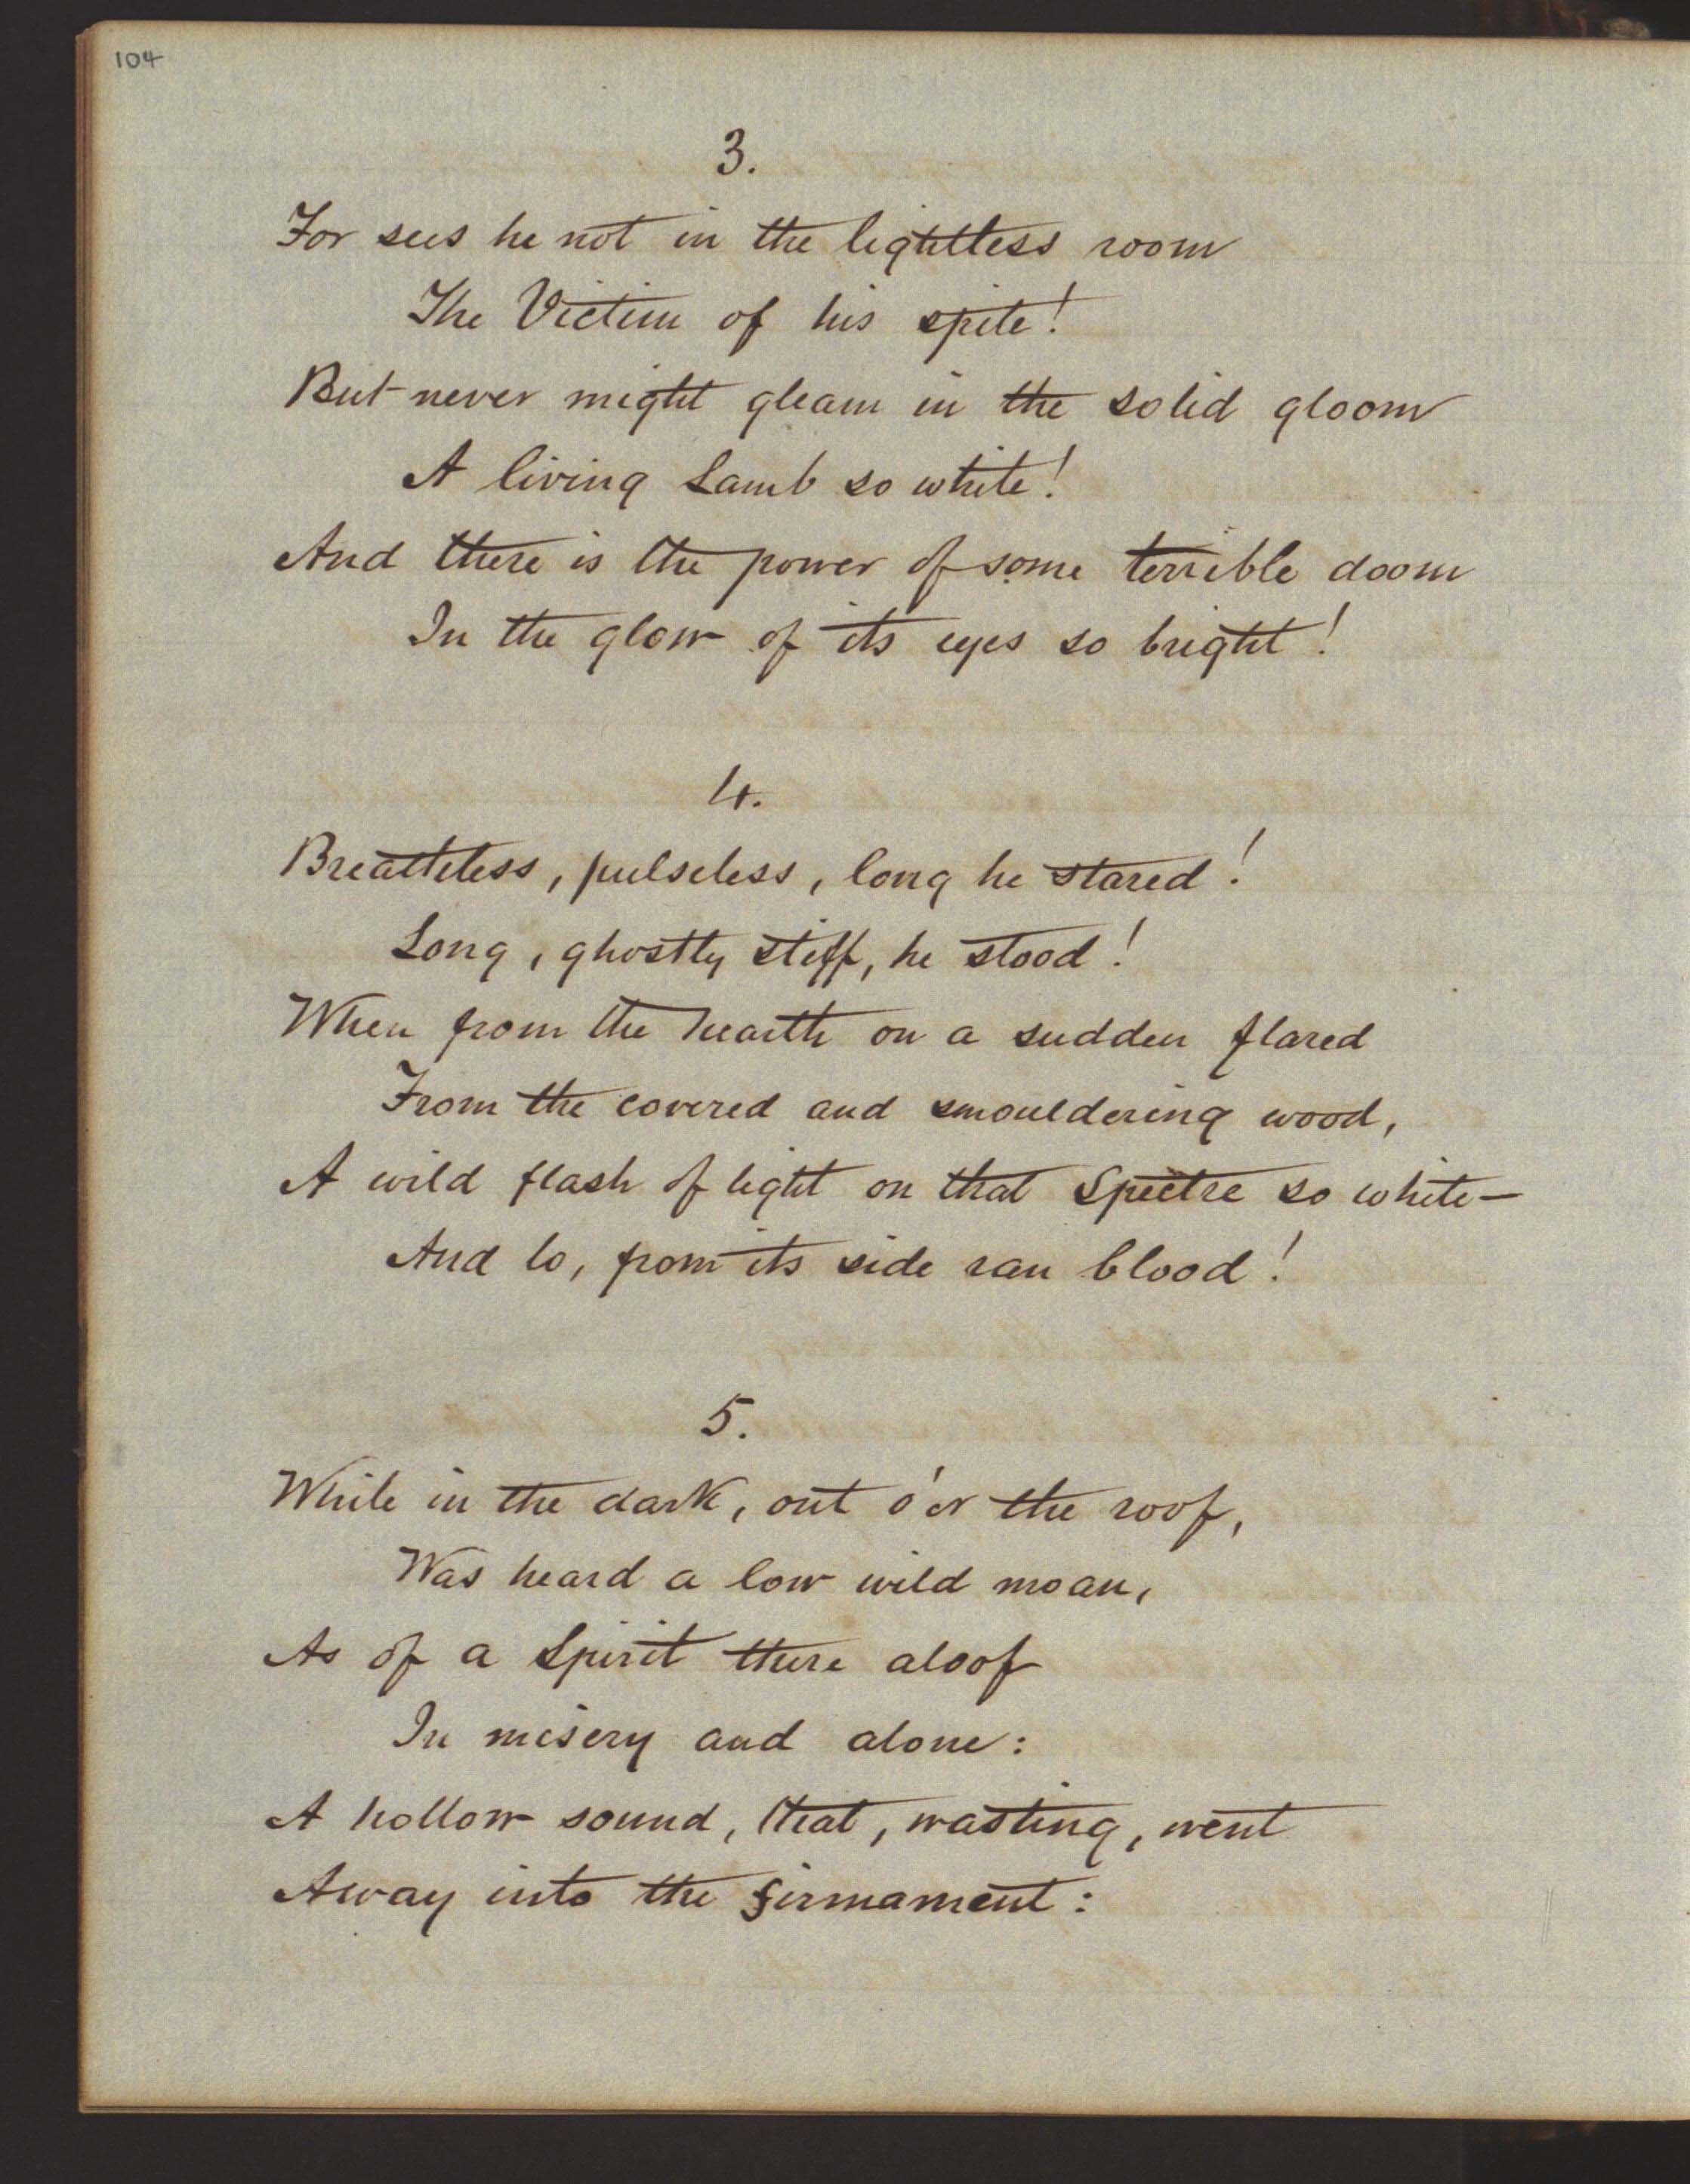 104
3.
For sees he not in the lightless room
The Victim of his spite!
But never might gleam in the solid gloom
A living Lamb so white!
And there is the power of some terrible doom
In the glow of its eyes so bright!
4.
Breathless, pulseless, long he stared!
Long, ghostly stiff, he stood!
When from the hearth on a sudden flared
From the covered and smouldering wood,
A wild flash of light on that Spectre so white—
And lo, from its side ran blood!
5.
While in the dark, out o'er the roof,
Was heard a low wild moan,
As of a Spirit there aloof
In misery and alone:
A hollow sound, that, wasting, went
Away into the firmament: